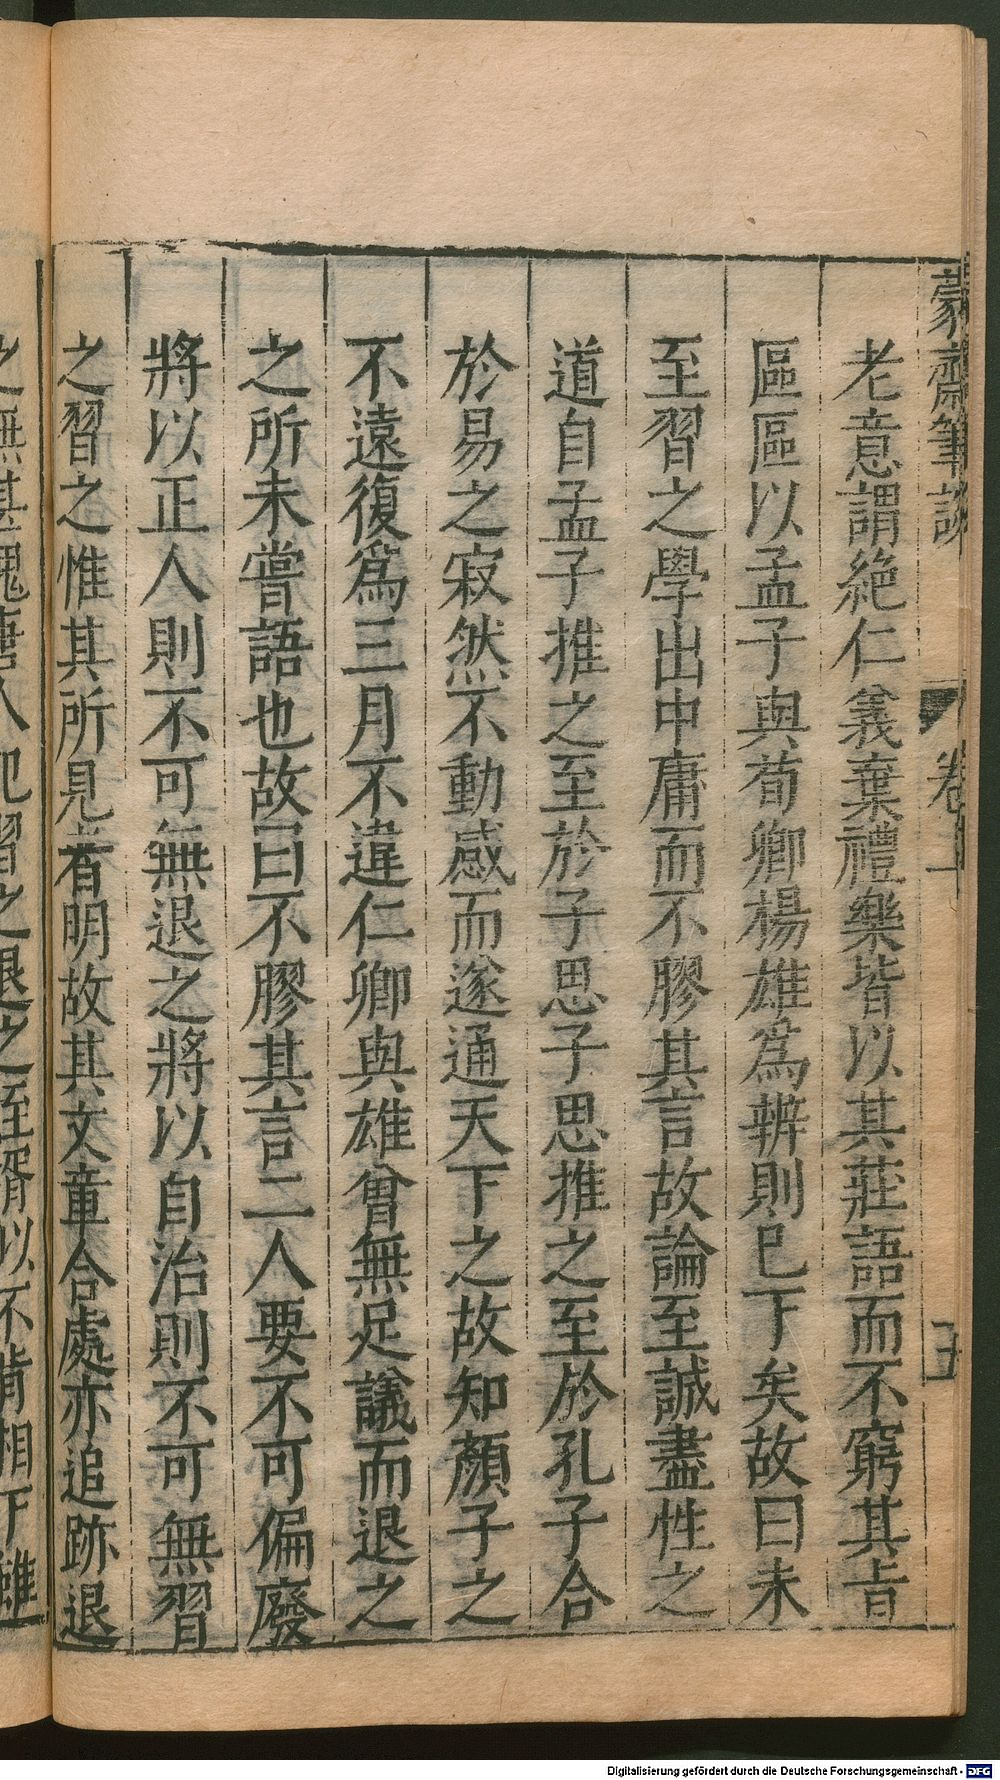 蒙齋筆談
卷上
五
老意謂絶仁義棄禮樂皆以其莊語而不窮其㫖
區區以孟子與荀卿楊雄爲辨則巳下矣故曰未
至習之學出中庸而不膠其言故論至誠盡性之
道自孟子推之至於子思子思推之至於孔子合
於易之寂然不動感而遂通天下之故知顏子之
不遠復爲三月不違仁卿與雄曾無足議而退之
之所未嘗語也故曰不膠其言二人要不可偏廢
將以正人則不可無退之將以自治則不可無習
之習之惟其所見者明故其文章合處亦追跡退
之無甚愧唐人犯習之退之至壻以不肯相下雖
Digitalisierung gefördert durch die Deutsche Forschungsgemeinschaft - DFG